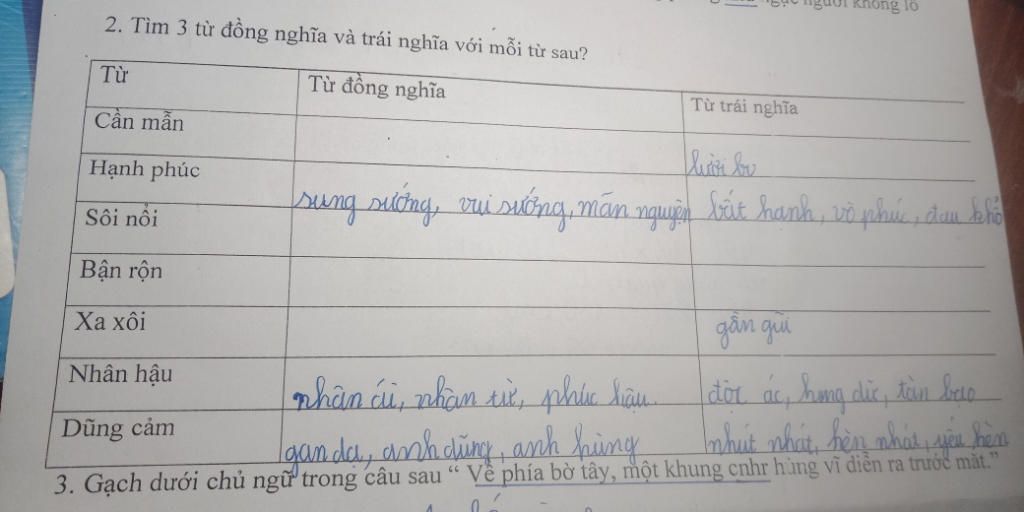 người không lồ
2. Tìm 3 từ đồng nghĩa và trái nghĩa với mỗi từ sau?
Từ Từ đồng nghĩa Từ trái nghĩa
Cần mẫn lười
Hạnh phúc sung sướng, vui sướng, mãn nguyện bất hanh, vô phúc, đau khổ
Sôi nổi
Bận rộn
Xa xôi gần gũi
Nhân hậu nhân ái, nhân từ, phúc hậu. độc ác, hung dữ, tàn bạo
Dũng cảm gan dạ, anh dũng, anh hùng nhút nhát, hèn nhát, yếu hèn
3. Gạch dưới chủ ngữ trong câu sau “ Về phía bờ tây, một khung cnhr hùng vĩ diễn ra trước mắt.”